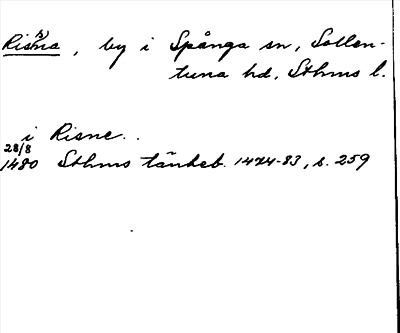 Risna, by i Spånga sn, Sollen-
tuna hd, Sthms l.
i Risne.
28/8
1480 Sthms tänkeb. 1474-83, s. 259